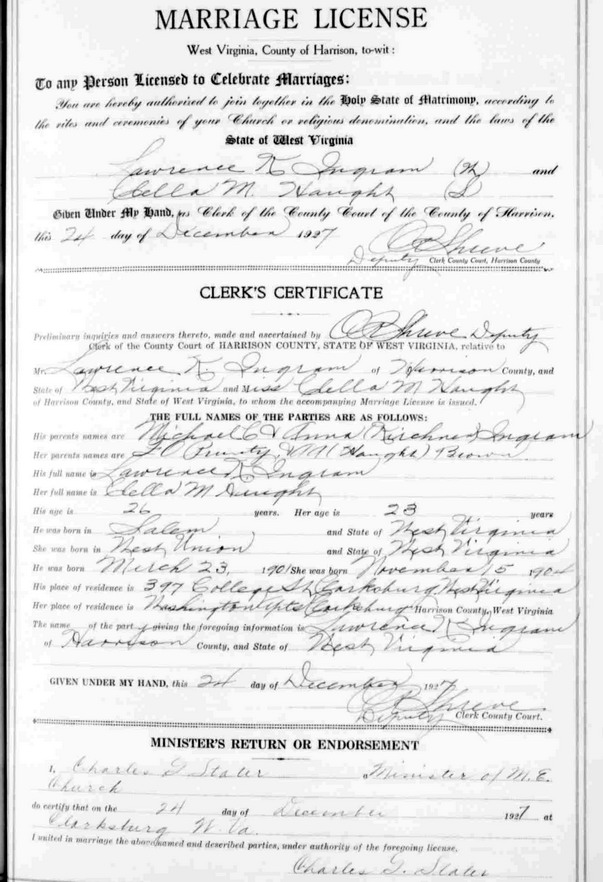 MARRIAGE LICENSE
West Virginia, County of Harrison, to-wit:
To any Person Licensed to Celebrate Marriages:
You are hereby authorized to join together in the Holy State of Matrimony, according to
the rites and ceremonies of your Church or religious denomination, and the laws of the
State of West Virginia
Lawrence K Ingram (W) and
Clella M Haught (S)
Given Under My Hand, as Clerk of the County Court of the County of Harrison,
this 24 day of December 1927
C R Shreve
Deputy Clerk County Court, Harrison County
CLERK'S CERTIFICATE
Preliminary inquiries and answers thereto, made and ascertained by C R Shreve Deputy
Clerk of the County Court of HARRISON COUNTY, STATE OF WEST VIRGINIA, relative to
Mr. Lawrence K Ingram of Harrison County, and
State of West Virginia and Miss Clella M Haught
of Harrison County, and State of West Virginia, to whom the accompanying Marriage License is issued.
THE FULL NAMES OF THE PARTIES ARE AS FOLLOWS:
His parents names are Michael C & Anna (Kirchner) Ingram
Her parents names are (Haught) Brown
His full name is Lawrence K Ingram
Her full name is Clella M Haught
His age is 26 years. Her age is 23 years
He was born in Salem and State of West Virginia
She was born in West Union and State of West Virginia
He was born March 23, 1901 She was born November 5 1904
His place of residence is 397 College St Clarksburg West Virginia
Her place of residence is Washington Apts Clarksburg Harrison County, West Virginia
The name of the party giving the foregoing information is Lawrence K Ingram
of Harrison County, and State of West Virginia
GIVEN UNDER MY HAND, this 24 day of December 1927
C R Shreve
Deputy Clerk County Court.
MINISTER'S RETURN OR ENDORSEMENT
I, Charles G Slater a Minister of M.E.
Church
do certify that on the 24 day of December 1927 at
Clarksburg W. Va.
I united in marriage the above named and described parties, under authority of the foregoing license,
Charles G. Slater